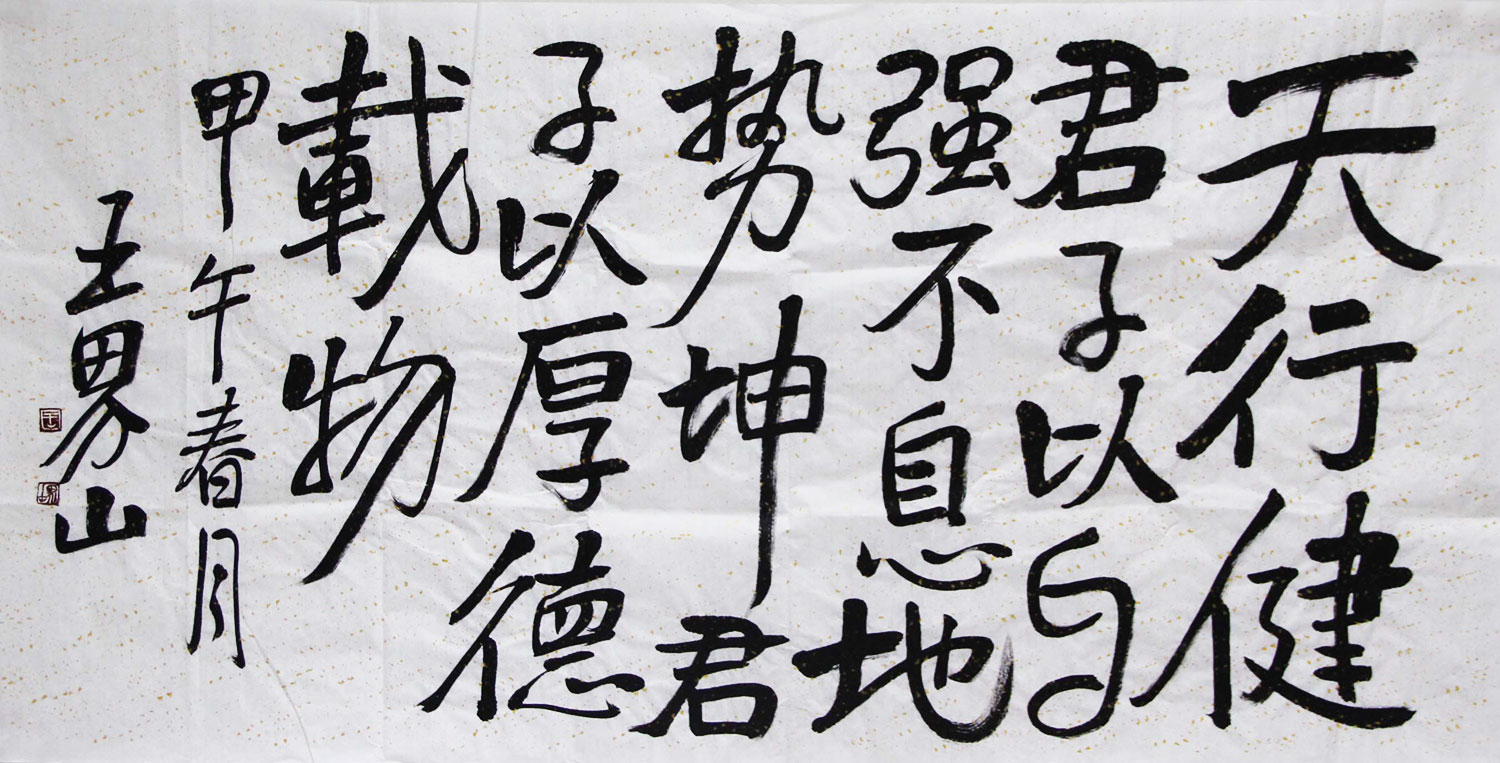 天行健
君子以自
强不息地
势坤君
子以厚德
載物
甲午春月
王界山